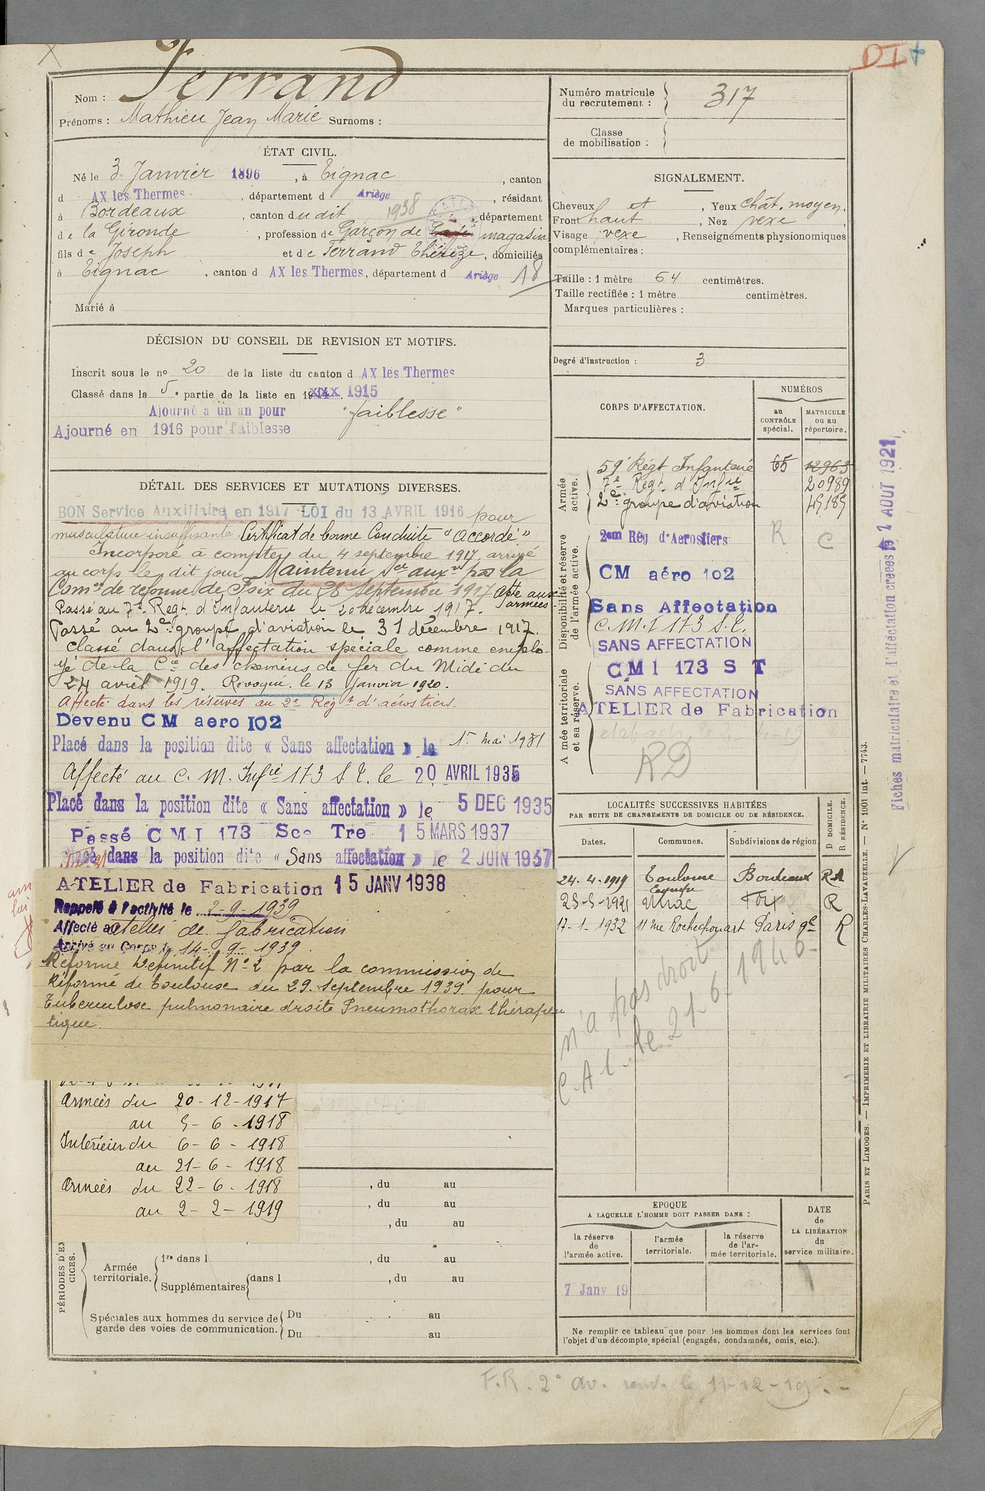 DI
Nom : Ferrand
Prénoms : Mathieu Jean Marie Surnoms :
Numéro matricule du recrutement : 317
Classe de mobilisation :
ÉTAT CIVIL.
Né le 3 Janvier 1896, à Tignac, canton
d AX les Thermes, département d Ariège, résidant
à Bordeaux, canton du dit 1938, département
de la Gironde, profession de Garçon de magasin
fils de Joseph et de Ferrand Thérèze, domiciliés
à Tignac, canton d AX les Thermes, département d Ariège 18
Marié à
SIGNALEMENT.
Cheveux et , Yeux chât. moyen.
Front haut , Nez vexe
Visage vexe , Renseignements physionomiques
complémentaires :
Taille : 1 mètre 64 centimètres.
Taille rectifiée : 1 mètre centimètres.
Marques particulières :
Degré d'instruction : 3
DÉCISION DU CONSEIL DE REVISION ET MOTIFS.
Inscrit sous le nº 20 de la liste du canton d AX les Thermes
Classé dans la 5e partie de la liste en 1915
Ajourné à un an pour "faiblesse"
Ajourné en 1916 pour faiblesse
DÉTAIL DES SERVICES ET MUTATIONS DIVERSES.
BON Service Auxiliaire en 1917 LOI du 13 AVRIL 1916 pour
musculature insuffisante Certificat de bonne Conduite "accordé"
Incorporé à compter du 4 septembre 1917, arrivé
au corps le dit jour. Maintenu Sce auxre par la
Comon de réforme de Foix du 28 Septembre 1917 Apte aux armées
Passé au 7e Regt d'Infanterie le 20 décembre 1917.
Passé au 2e groupe d'aviation le 31 décembre 1917.
Classé dans l'affectation spéciale comme emplo-
yé de la Cie des chemins de fer du Midi du
24 avril 1919. Révoqué le 13 Janvier 1920.
Affecté dans les réserves au 2e Régt d'aérostiers.
Devenu CM aéro 102
Placé dans la position dite « Sans affectation » le 1er mai 1931
Affecté au C. M. Infie 173 S.T. le 20 AVRIL 1935
Placé dans la position dite « Sans affectation » le 5 DEC 1935
Passé CMI 173 Sce Tre 15 MARS 1937
Placé dans la position dite « Sans affectation » le 2 JUIN 1937
ATELIER de Fabrication 15 JANV 1938
Rappelé à l'activité le 2-9-1939
Affecté atelier de fabrication
Arrivé au Corps le 14-9-1939.
Réformé Définitif Nº 2 par la commission de
Réforme de Toulouse du 29 Septembre 1939 pour
Tuberculose pulmonaire droite Pneumothorax thérapeu
tique
Armées du 20-12-1917
au 5-6-1918
Intérieur du 6-6-1918
au 21-6-1918
Armées du 22-6-1918
au 2-2-1919
, du au
, du au
, du au
PÉRIODES D'EX
CICES.
Armée territoriale.
1re dans l , du au
Supplémentaires dans l , du au
Spéciales aux hommes du service de garde des voies de communication.
Du au
Du au
CORPS D'AFFECTATION.
NUMÉROS
au CONTRÔLE spécial.
MATRICULE ou au répertoire.
Armée active.
59e Régt Infanterie 65 12963
7e Régt d'Infie 20989
2e groupe d'aviation 45185
Disponibilité et réserve de l'armée active.
2eme Rég d'Aérostiers R C
CM aéro 102
Sans Affectation
C.M.I 173 S.T.
SANS AFFECTATION
CMI 173 S T
Armée territoriale et sa réserve.
SANS AFFECTATION
ATELIER de Fabrication
RD
LOCALITÉS SUCCESSIVES HABITÉES
PAR SUITE DE CHANGEMENTS DE DOMICILE OU DE RÉSIDENCE.
Dates. Communes. Subdivisions de région
D DOMICILE. R RÉSIDENCE.
24-4-1919 Toulouse Bordeaux R
1921 Foix R
17-1-1932 11 rue Rochechouart Paris 9e R
n'a pas droit
C.A.C. le 21-6-1946
EPOQUE
A LAQUELLE L'HOMME DOIT PASSER DANS :
la réserve de l'armée active.
l'armée territoriale.
la réserve de l'armée territoriale.
DATE de LA LIBÉRATION du service militaire.
7 Janv 19
Ne remplir ce tableau que pour les hommes dont les services font
l'objet d'un décompte spécial (engagés, condamnés, omis, etc.).
F.R. 2e
Fiches matriculaire et d'affectation créées le 1 AOUT 1921
PARIS ET LIMOGES. — IMPRIMERIE ET LIBRAIRIE MILITAIRES CHARLES-LAVAUZELLE. — Nº 1001 int. — 7743.